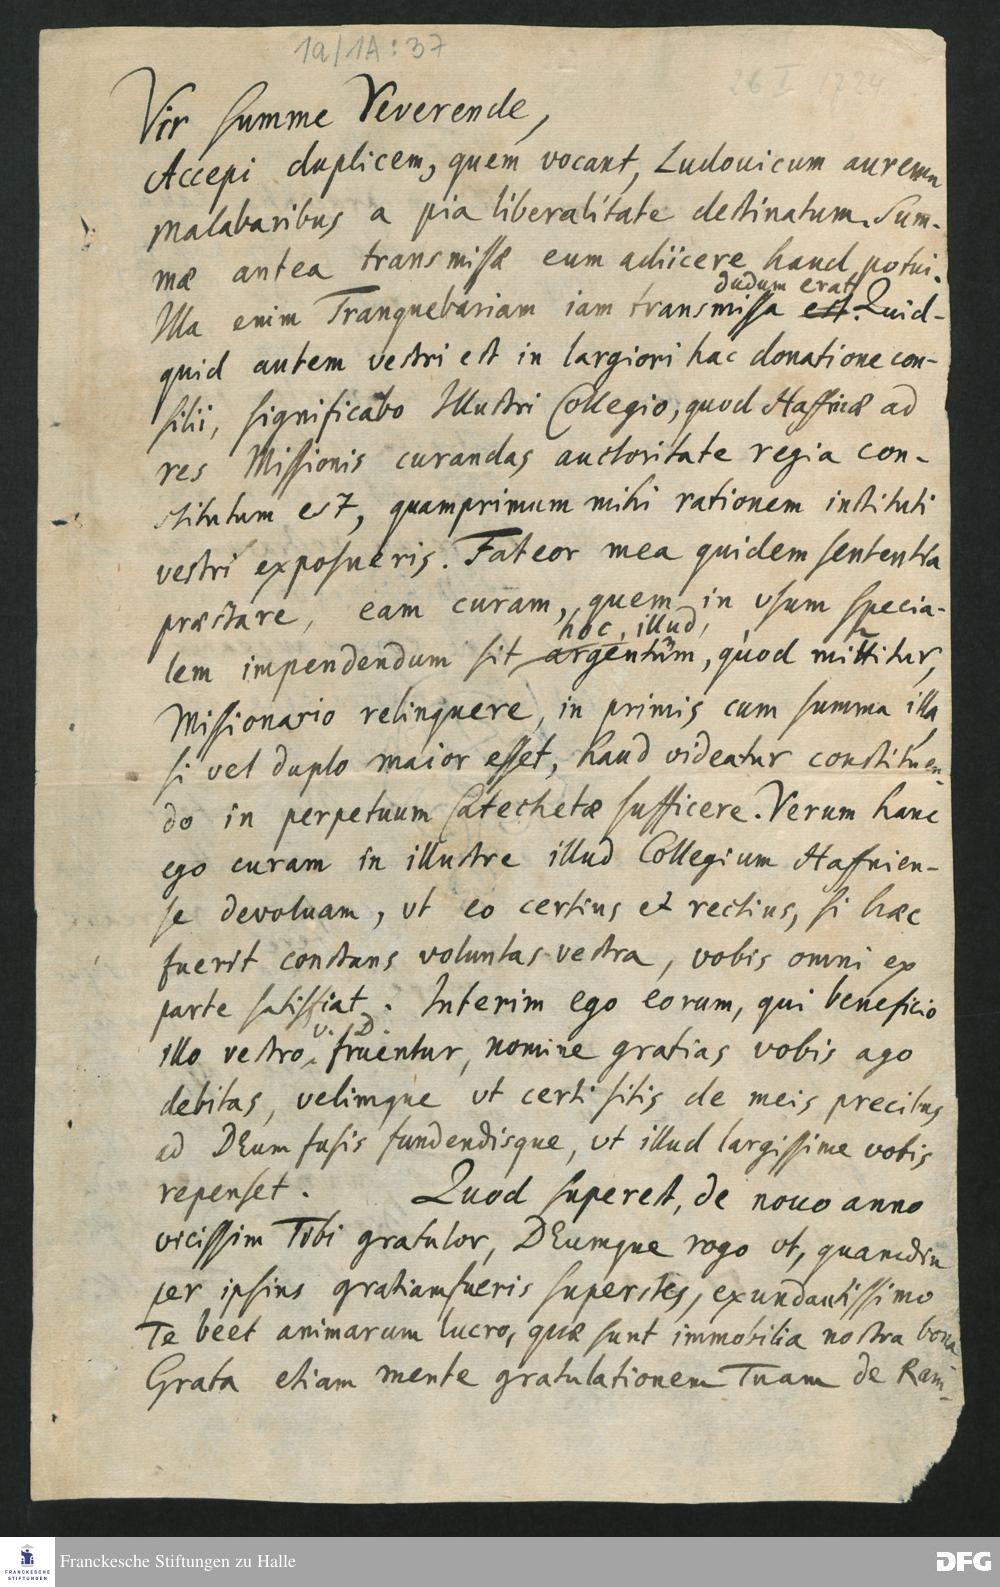 1a/1A : 37
26 I 1724
Vir summe Reverende,
Accepi duplicem, quem vocant, Ludouicum aureum
Malabaribus a pia liberalitate destinatum. Sum-
mæ antea transmissæ eum adiicere haud potui.
dudum erat
Illa enim Tranquebariam iam transmissa est. Quid-
quid autem vestri est in largiori hac donatione con-
silii, significabo Illustri Collegio, quod Haffniæ ad
res Missionis curandas auctoritate regia con-
stitutum est, quamprimum mihi rationem instituti
vestri exposueris. Fateor mea quidem sententia
præstare, eam curam, quem in vsum specia-
hoc, illud,
lem impendendum sit argentum, quod mittitur,
Missionario relinquere, in primis cum summa illa,
si vel duplo maior esset, haud videatur constituen-
do in perpetuum Catechetæ sufficere. Verum hanc
ego curam in illustre illud Collegium Haffnien-
se devoluam, vt eo certius et rectius, si hæc
fuerit constans voluntas vestra, vobis omni ex
parte satisfiat. Interim ego eorum, qui beneficio
v. D.
illo vestro fruentur, nomine gratias vobis ago
debitas, velimque vt certi sitis de meis precibus
ad DEum fusis fundendisque, vt illud largissime vobis
repenset. Quod superest, de nouo anno
vicissim Tibi gratulor, DEumque rogo vt, quamdiu
per ipsius gratiam fueris superstes, exundantissimo
Te beet animarum lucro, quæ sunt immobilia nostra bona
Grata etiam mente gratulationem Tuam de Ram-
FRANCKESCHE
STIFTUNGEN
Franckesche Stiftungen zu Halle
DFG